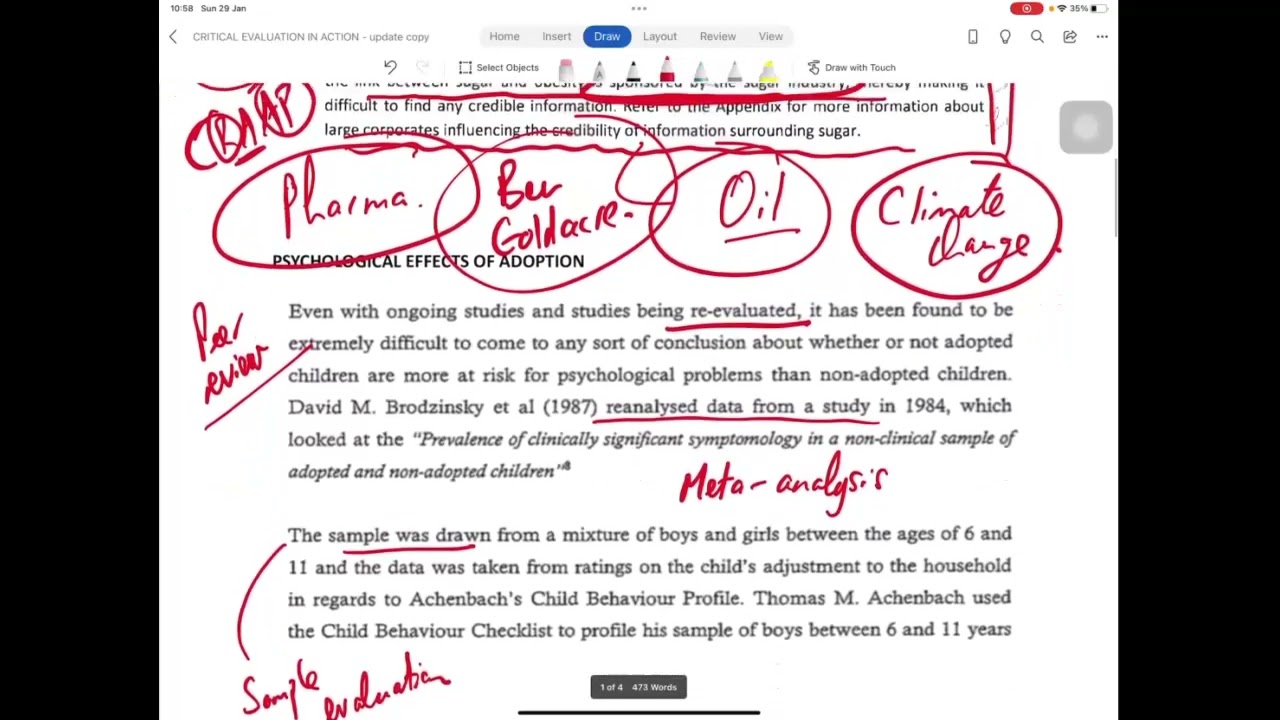 10:58 Sun 29 Jan
35%
CRITICAL EVALUATION IN ACTION - update copy
Home Insert Draw Layout Review View
Select Objects
Draw with Touch
the link between sugar and obesity is sponsored by the sugar industry, thereby making it
difficult to find any credible information. Refer to the Appendix for more information about
large corporates influencing the credibility of information surrounding sugar.
CRAAP
Pharma.
Ben
Goldacre.
Oil
Climate
change.
PSYCHOLOGICAL EFFECTS OF ADOPTION
Peer
review
Even with ongoing studies and studies being re-evaluated, it has been found to be
extremely difficult to come to any sort of conclusion about whether or not adopted
children are more at risk for psychological problems than non-adopted children.
David M. Brodzinsky et al (1987) reanalysed data from a study in 1984, which
looked at the “Prevalence of clinically significant symptomology in a non-clinical sample of
adopted and non-adopted children”
Meta-analysis
The sample was drawn from a mixture of boys and girls between the ages of 6 and
11 and the data was taken from ratings on the child's adjustment to the household
in regards to Achenbach's Child Behaviour Profile. Thomas M. Achenbach used
the Child Behaviour Checklist to profile his sample of boys between 6 and 11 years
Sample
evaluation
1 of 4 473 Words